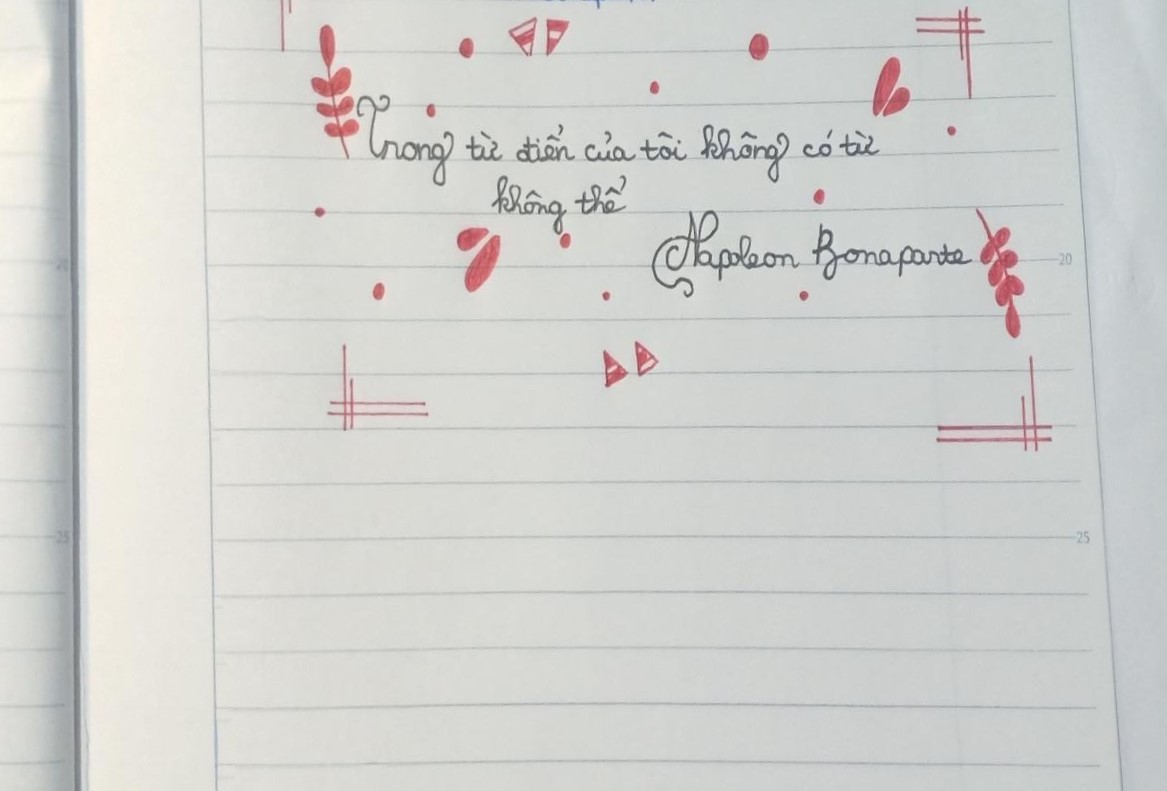 Trong từ điển của tôi không có từ
không thể
Napoleon Bonaparte
20
25
25